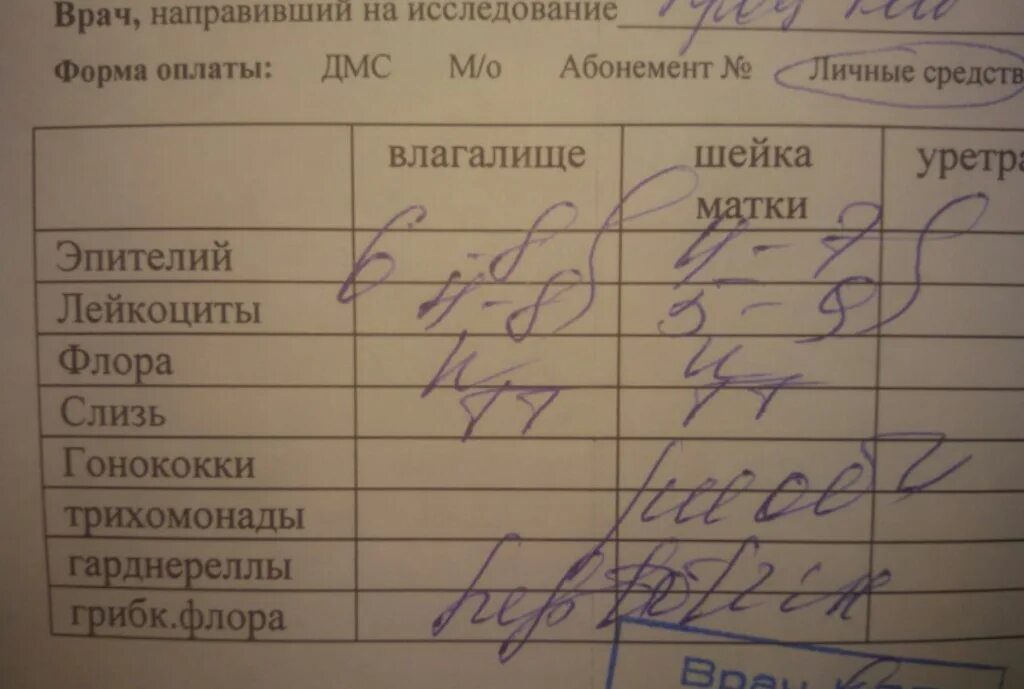 Врач, направивший на исследование
Форма оплаты: ДМС М/о Абонемент № Личные средств
влагалище шейка матки уретра
Эпителий 6 - 8 4 - 7
Лейкоциты 4 - 8 5 - 9
Флора
Слизь ++ ++
Гонококки
трихомонады
гарднереллы
грибк.флора
Врач